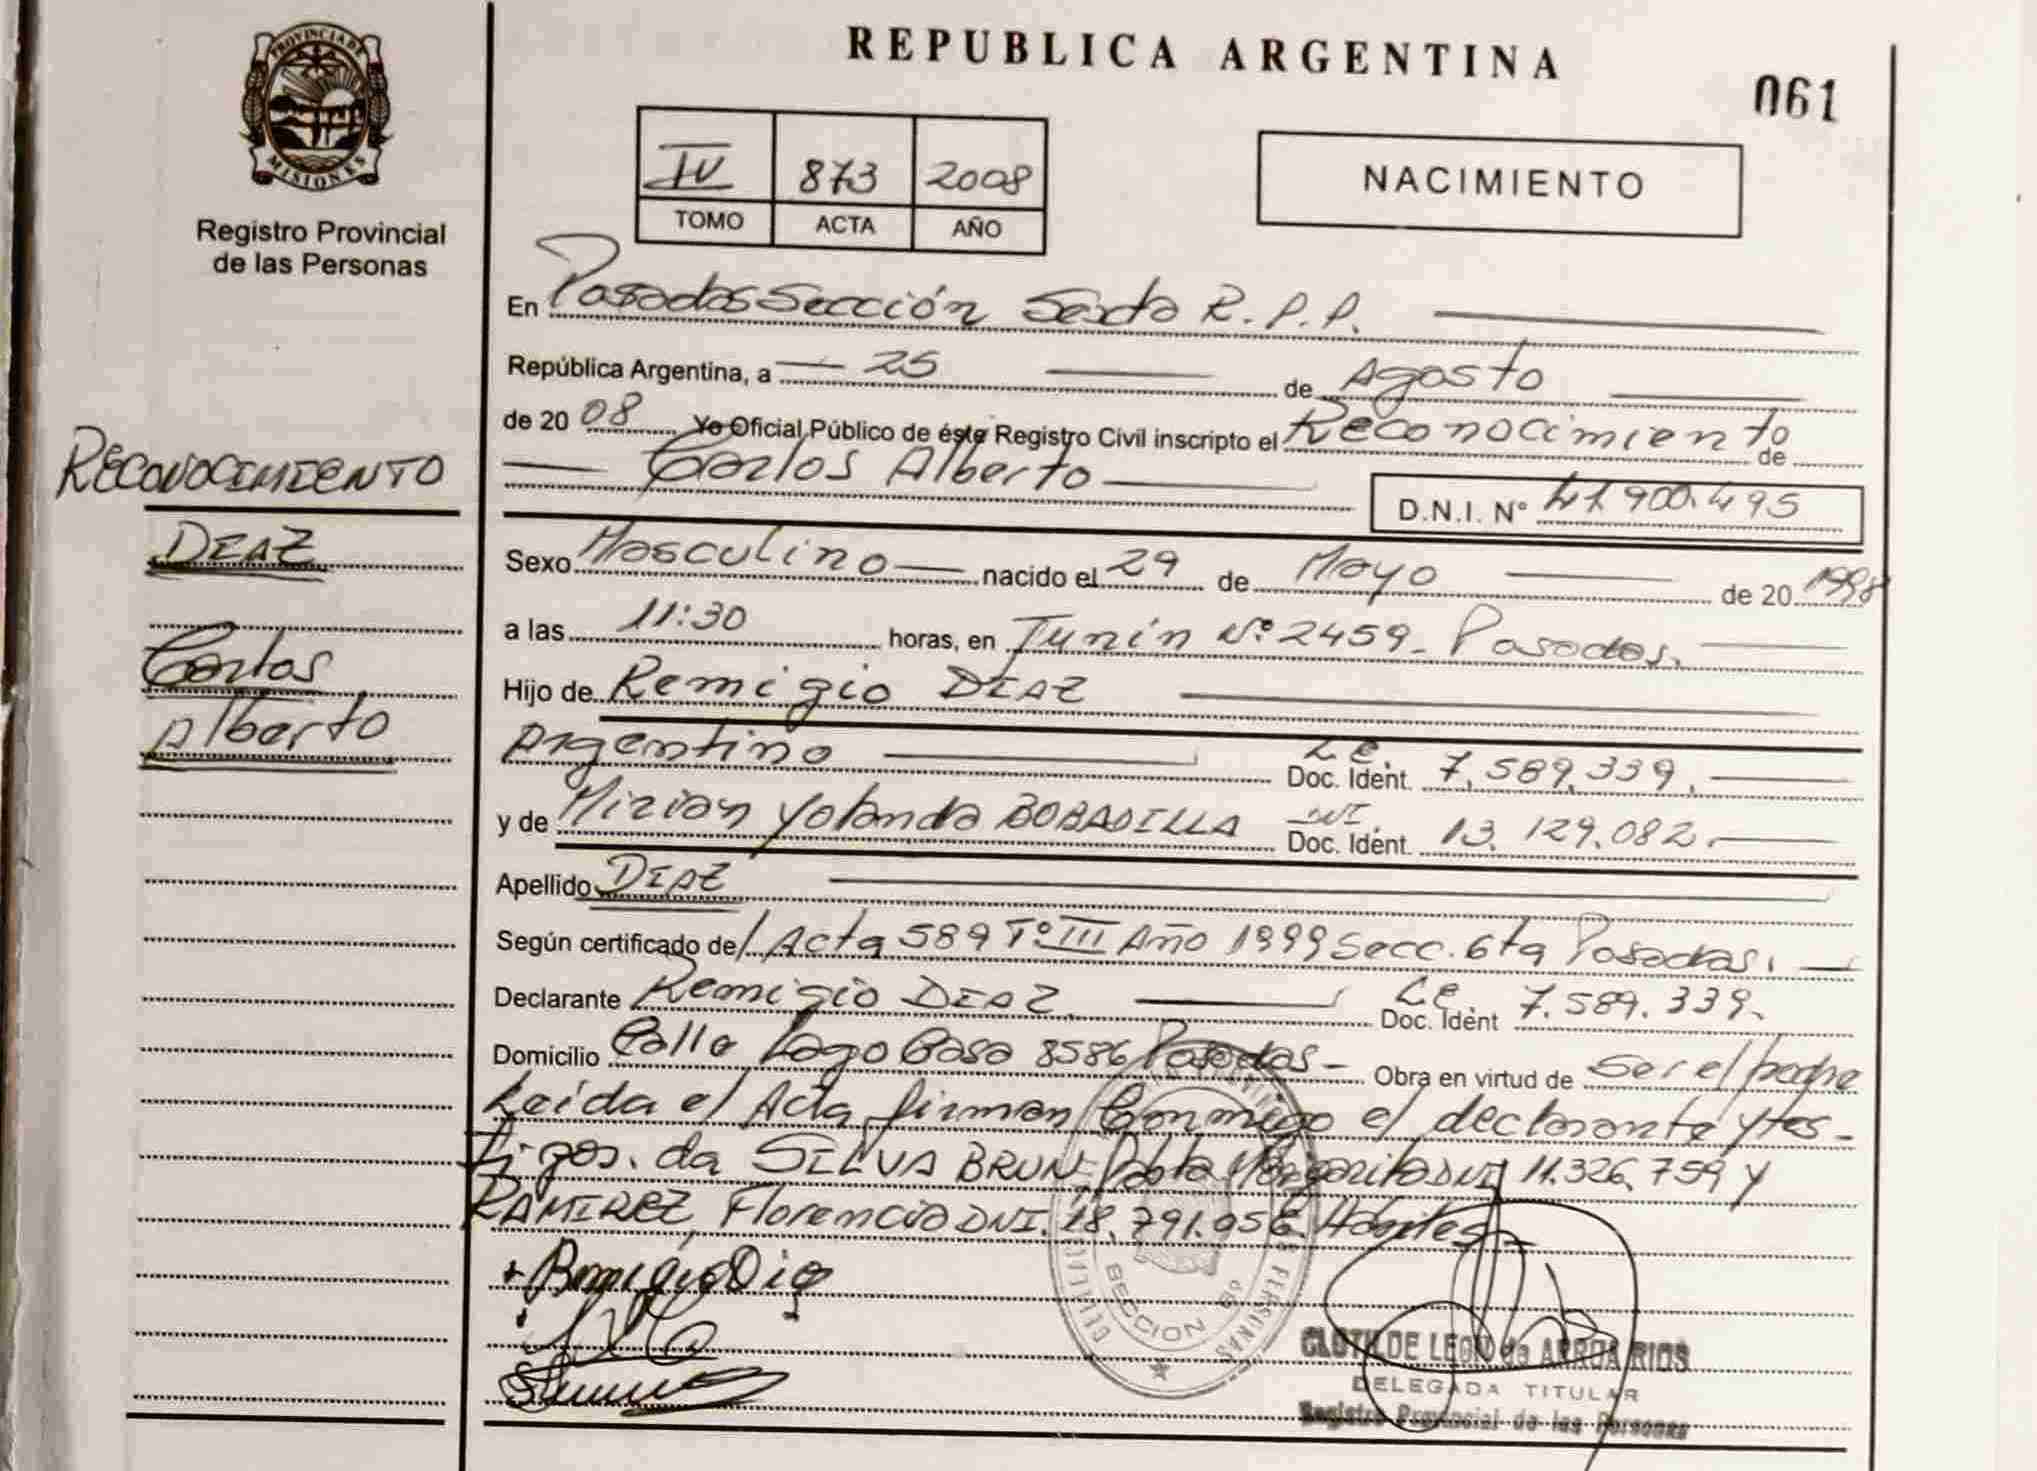 PROVINCIA DE
MISIONES
Registro Provincial
de las Personas
RECONOCIMIENTO
DIAZ
Carlos
Alberto
REPUBLICA ARGENTINA
061
IV 873 2008
TOMO ACTA AÑO
NACIMIENTO
En Posadas Sección Sexta R.P.P.
República Argentina, a 25 de Agosto
de 20 08 Yo Oficial Público de éste Registro Civil inscripto el Reconocimiento de
Carlos Alberto D.N.I. N° 41.900.495
Sexo Masculino nacido el 29 de Mayo de 20 1998
a las 11:30 horas, en Junín N° 2459 - Posadas.
Hijo de Remigio DIAZ
Argentino L.E. Doc. Ident. 7.589.339.
y de Mirian Yolanda BOBADILLA DNI. Doc. Ident. 13.129.082.
Apellido DIAZ
Según certificado de Acta 589 T° III Año 1999 Secc. 6ta Posadas.
Declarante Remigio DIAZ L.E. Doc. Ident 7.589.339.
Domicilio Calle Lago 8586 Posadas - Obra en virtud de ser el padre
Leída el Acta, firman conmigo el declarante y tes-
tigos. da SILVA BRUN, Margarita DNI 11.326.759 y
RAMIREZ, Florencio DNI. 18.791.056. Hábiles -
Remigio Diaz
SECCION 6ª
PERSONAS
CLOTILDE LEON de ARROA RIOS
DELEGADA TITULAR
Registro Provincial de las Personas